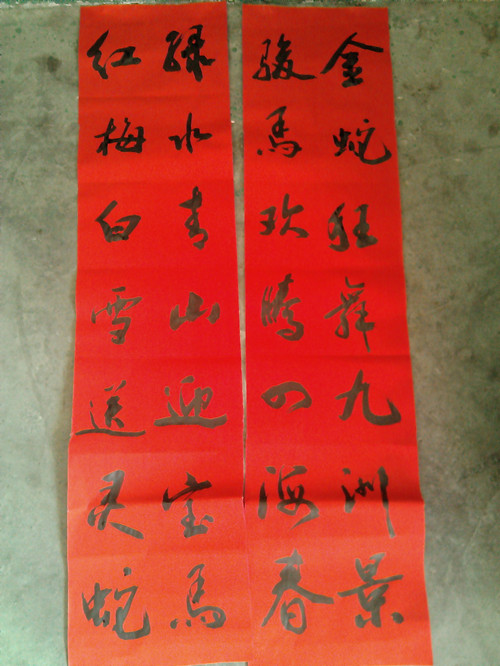 金蛇狂舞九洲景
骏马欢腾四海春
绿水青山迎宝马
红梅白雪送灵蛇